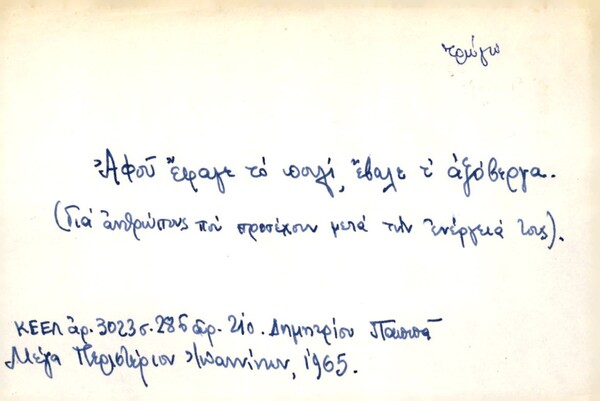 τρώγω
Ἀφοῦ ἔφαγε τό πουλί, ἔβαλε τ' ἀξόβεργα.
(Γιά ἀνθρώπους πού προσέχουν μετά τήν ἐνέργειά τους).
ΚΕΕΛ ἀρ. 3023 σ. 285 ἀρ. 210. Δημητρίου Παππᾶ
Μέγα Περιστέριον Ἰωαννίνων, 1965.